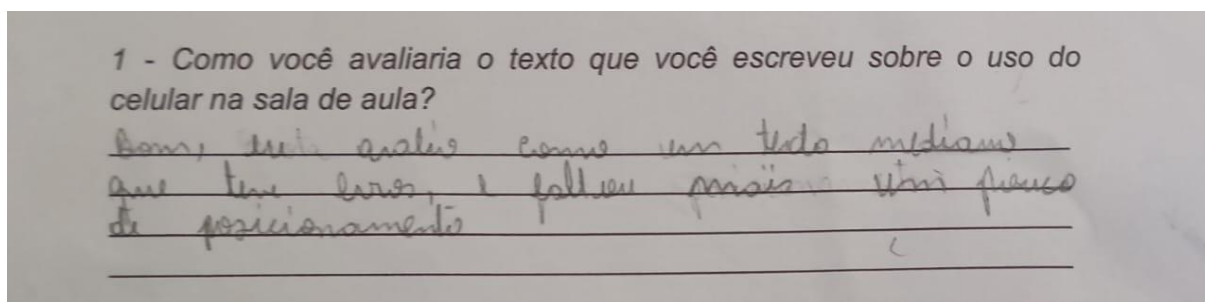 1 - Como você avaliaria o texto que você escreveu sobre o uso do
celular na sala de aula?
Bom, eu avalio como um texto mediano
que teve erros, e faltou mais um pouco
de posicionamento